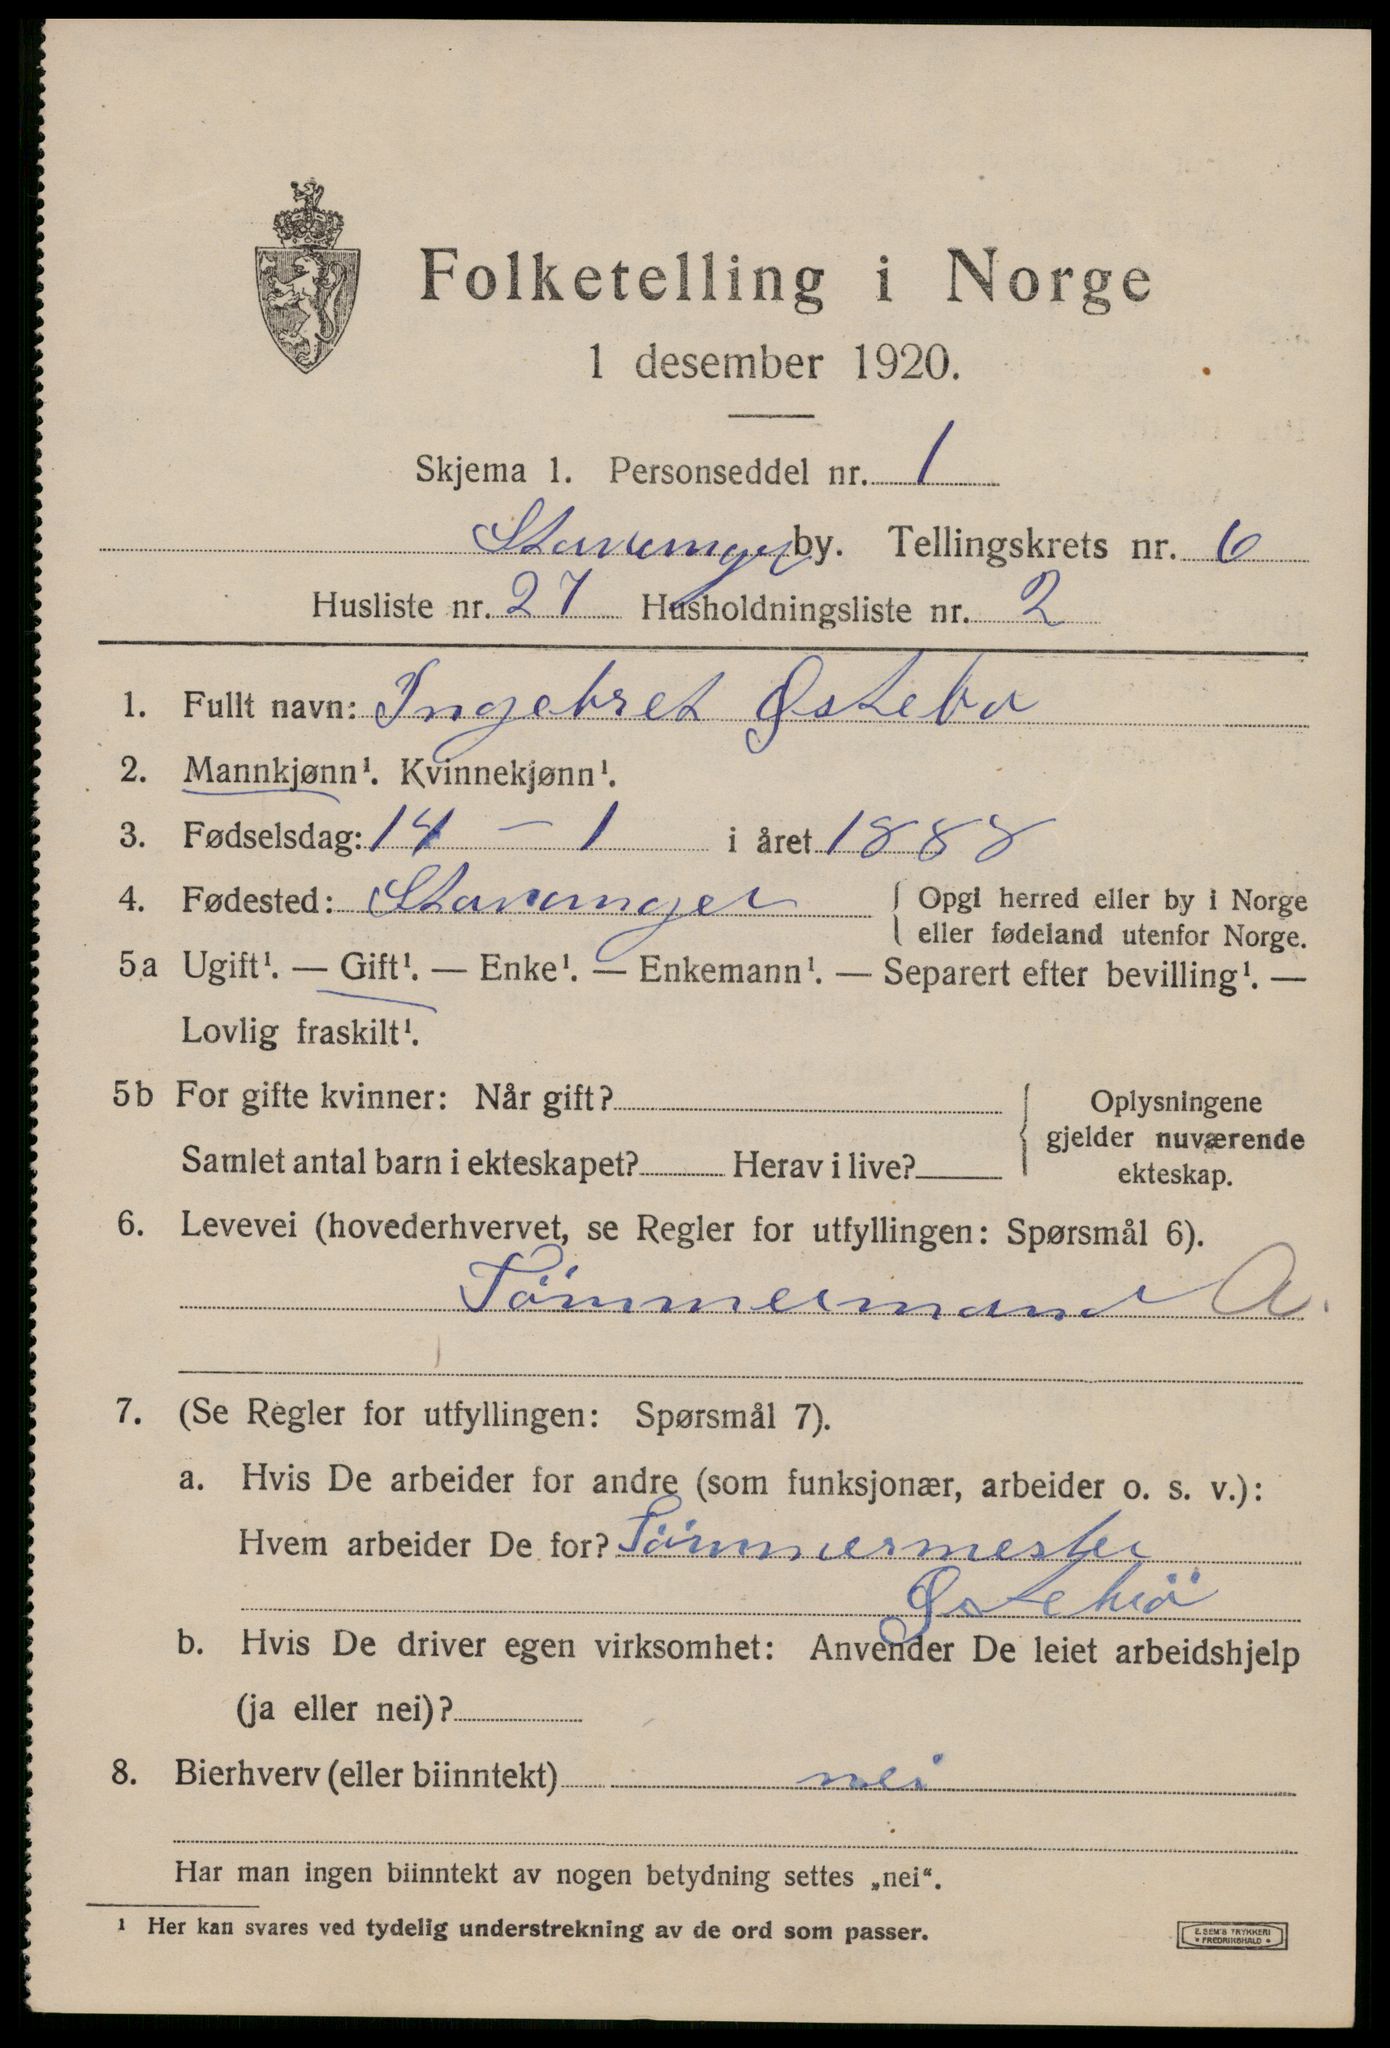 Folketelling i Norge
1 desember 1920.
Skjema 1. Personseddel nr. 1
Stavanger by. Tellingskrets nr. 6
Husliste nr. 27 Husholdningsliste nr. 2
1. Fullt navn: Ingebret Østebø
2. Mannkjønn¹. Kvinnekjønn¹.
3. Fødselsdag: 14 – 1 i året 1888
4. Fødested: Stavanger { Opgi herred eller by i Norge
eller fødeland utenfor Norge.
5a Ugift¹. — Gift¹. — Enke¹. — Enkemann¹. — Separert efter bevilling¹. —
Lovlig fraskilt¹.
5b For gifte kvinner: Når gift? { Oplysningene
gjelder nuværende
Samlet antal barn i ekteskapet? Herav i live?
ekteskap.
6. Levevei (hovederhvervet, se Regler for utfyllingen: Spørsmål 6).
Tömmermand A.
7. (Se Regler for utfyllingen: Spørsmål 7).
a. Hvis De arbeider for andre (som funksjonær, arbeider o. s. v.):
Hvem arbeider De for? Tömmermester
Østebö
b. Hvis De driver egen virksomhet: Anvender De leiet arbeidshjelp
(ja eller nei)?
8. Bierhverv (eller biinntekt) nei
Har man ingen biinntekt av nogen betydning settes „nei“.
¹ Her kan svares ved tydelig understrekning av de ord som passer.
E. SEM'S TRYKKERI
• FREDRIKSHALD •